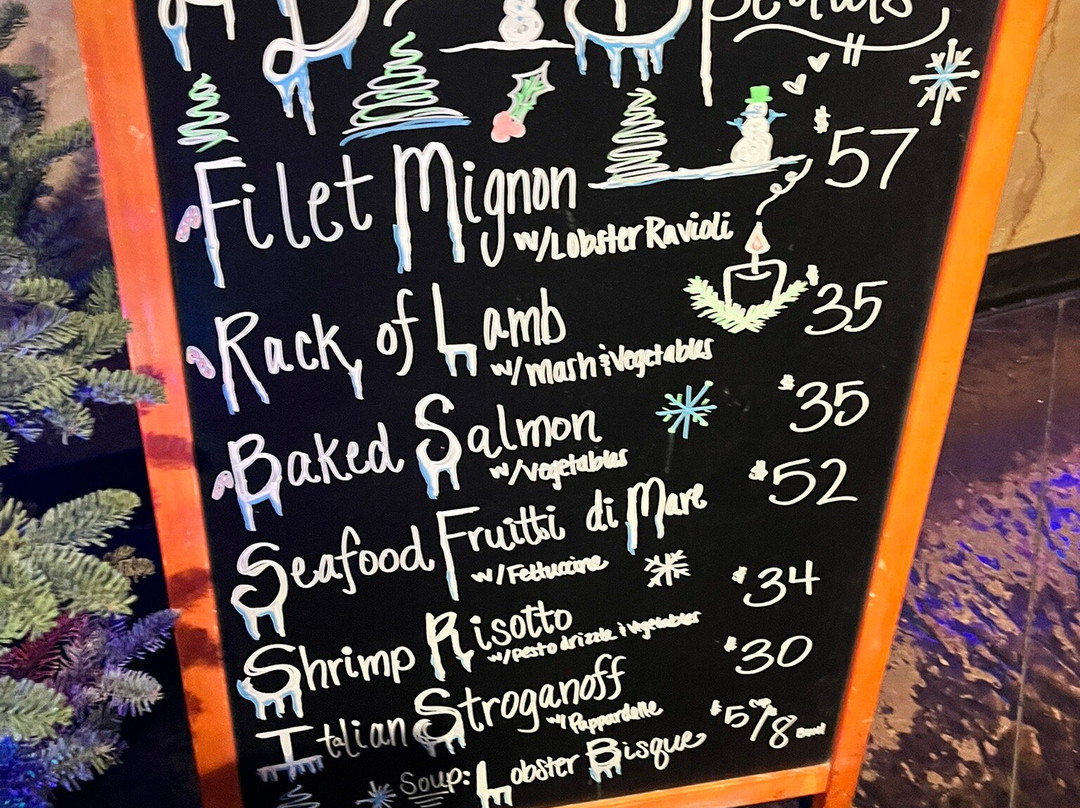 Specials
$57
Filet Mignon
w/Lobster Ravioli
$35
Rack of Lamb
w/ mash & Vegetables
$35
Baked Salmon
w/vegetables
$52
Seafood Fruitti di Mare
w/Fettuccine
$34
Shrimp Risotto
w/pesto drizzle & vegetables
$30
Italian Stroganoff
w/ Pappardelle
$5 cup/8 Bowl
Soup: Lobster Bisque